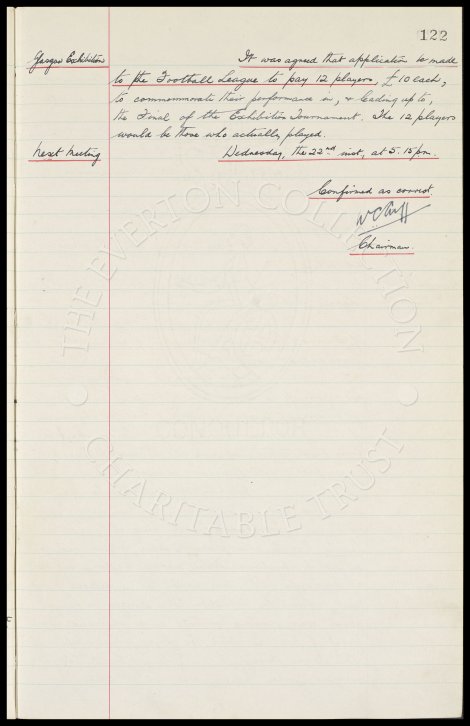 122
Glasgow Exhibition
It was agreed that application be made
to the Football League to pay 12 players, £10 each,
to commemorate their performance in, & leading up to,
the Final of the Exhibition Tournament. The 12 players
would be those who actually played.
Next Meeting
Wednesday, the 22nd inst, at 5.15pm.
Confirmed as correct
W C Cuff
Chairman.
THE EVERTON COLLECTION
CHARITABLE TRUST